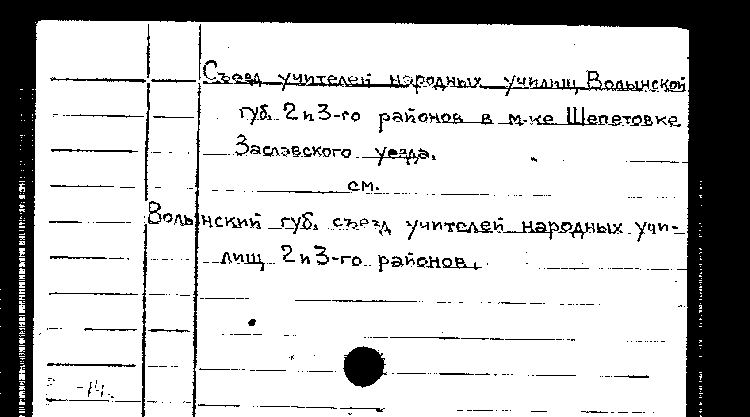 Съезд учителей народных училищ Волынской
губ. 2 и 3-го районов в м-ке Шепетовке
Заславского уезда.
см.
Волынский губ. съезд учителей народных учи-
лищ 2 и 3-го районов.